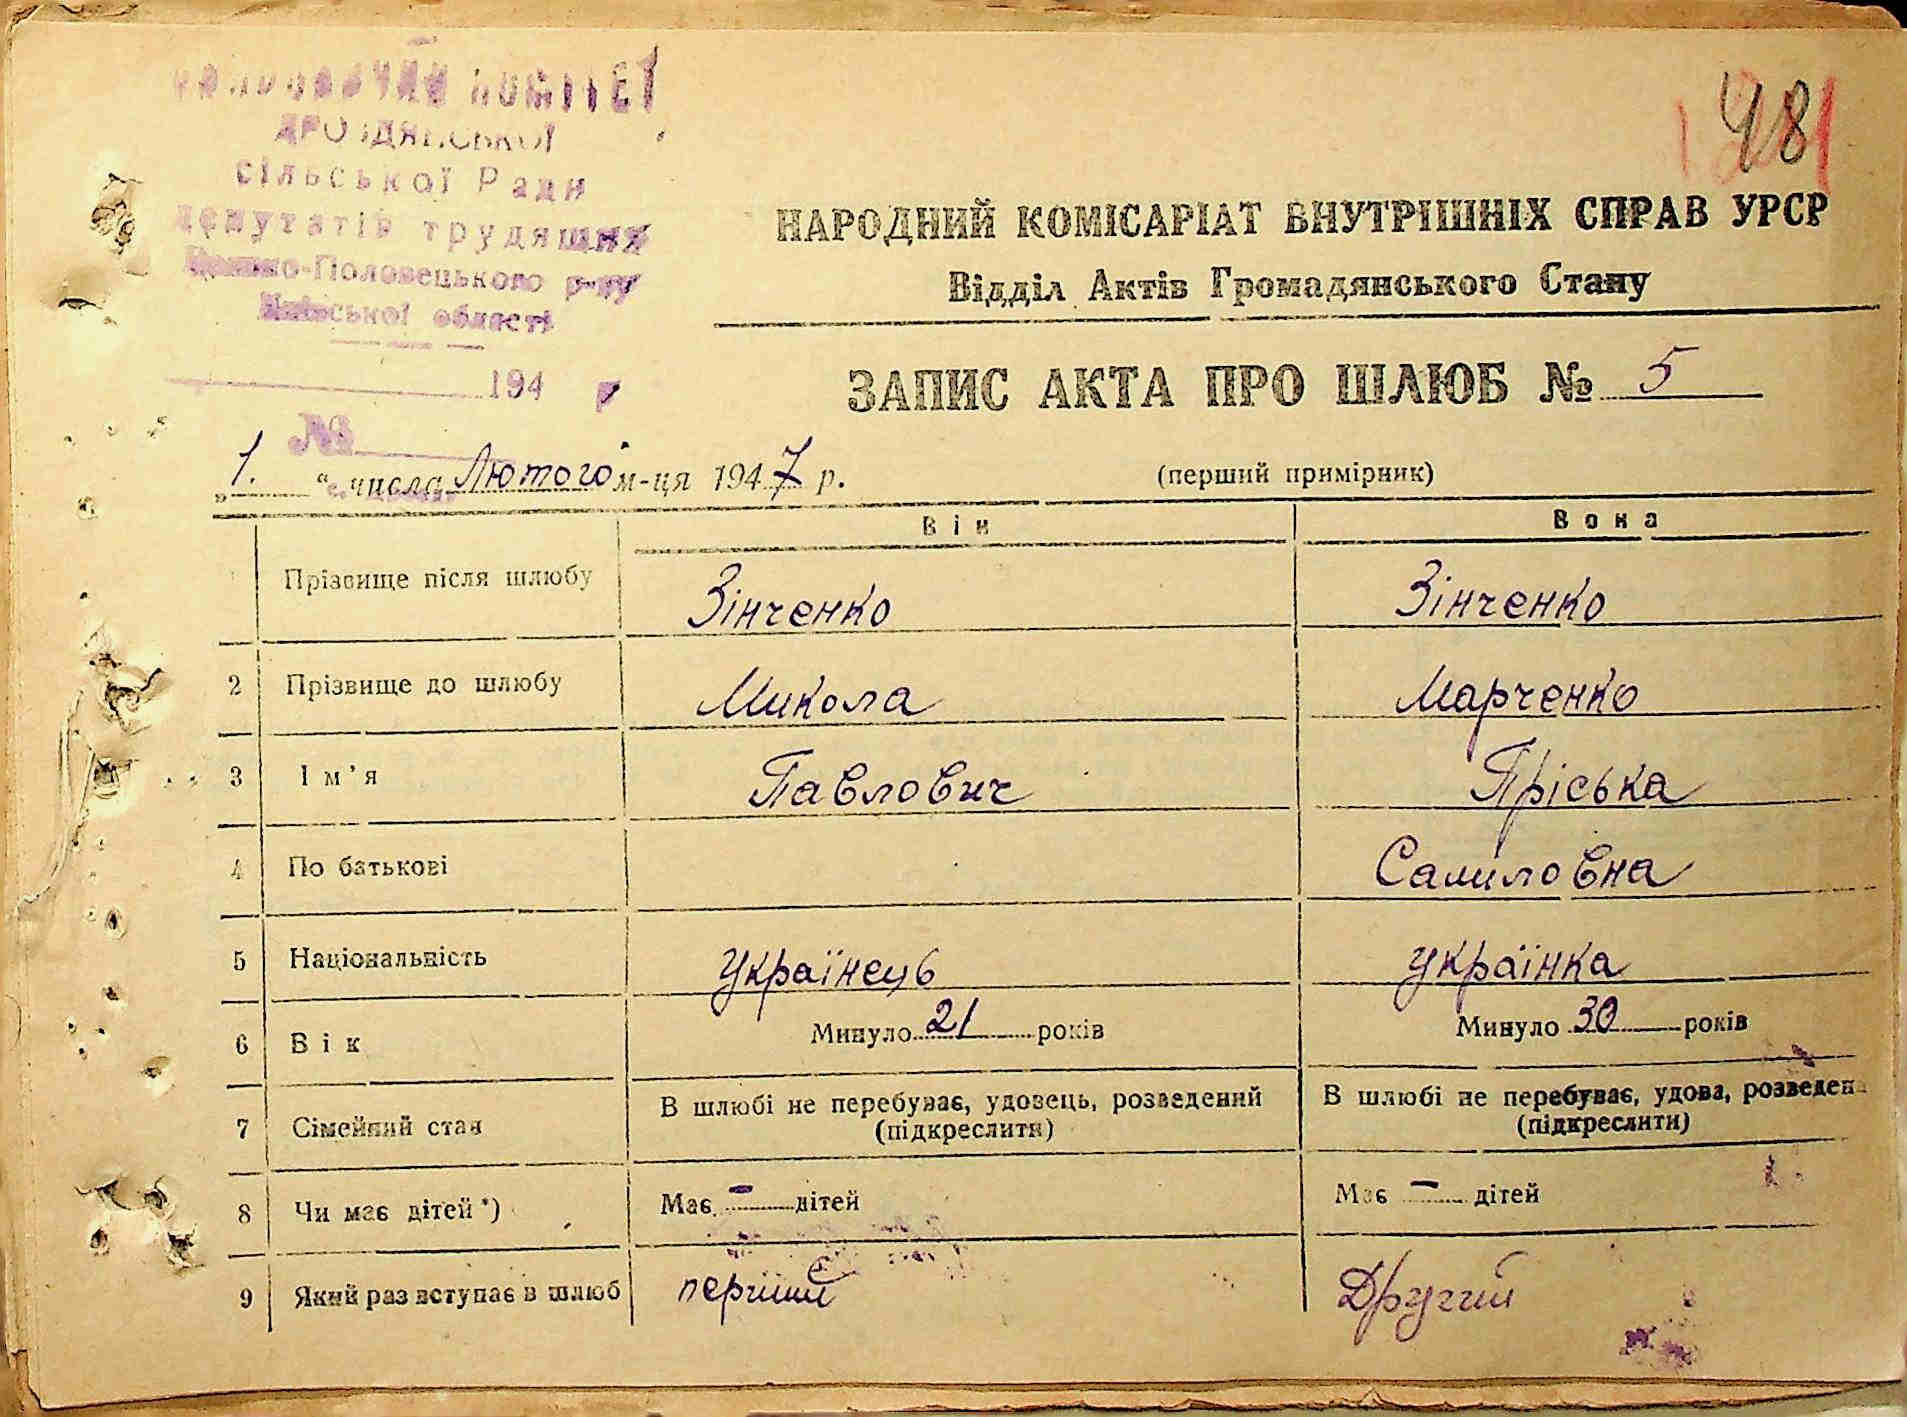 комітет
сільської Ради
депутатів трудящих
Половецького р-ну
Київської області
194
№
481
НАРОДНИЙ КОМІСАРІАТ ВНУТРІШНІХ СПРАВ УРСР
Відділ Актів Громадянського Стану
ЗАПИС АКТА ПРО ШЛЮБ № 5
„1.“ числа Лютого м-ця 1947 р. (перший примірник)
Він Вона
Прізвище після шлюбу Зінченко Зінченко
2 Прізвище до шлюбу Микола Марченко
3 Ім’я Павлович Пріська
4 По батькові Самиловна
5 Національність Українець Українка
6 Вік Минуло 21 років Минуло 30 років
7 Сімейний стан В шлюбі не перебуває, удовець, розведений (підкреслити) В шлюбі не перебуває, удова, розведена (підкреслити)
8 Чи має дітей*) Має – дітей Має – дітей
9 Який раз вступає в шлюб перший Другий